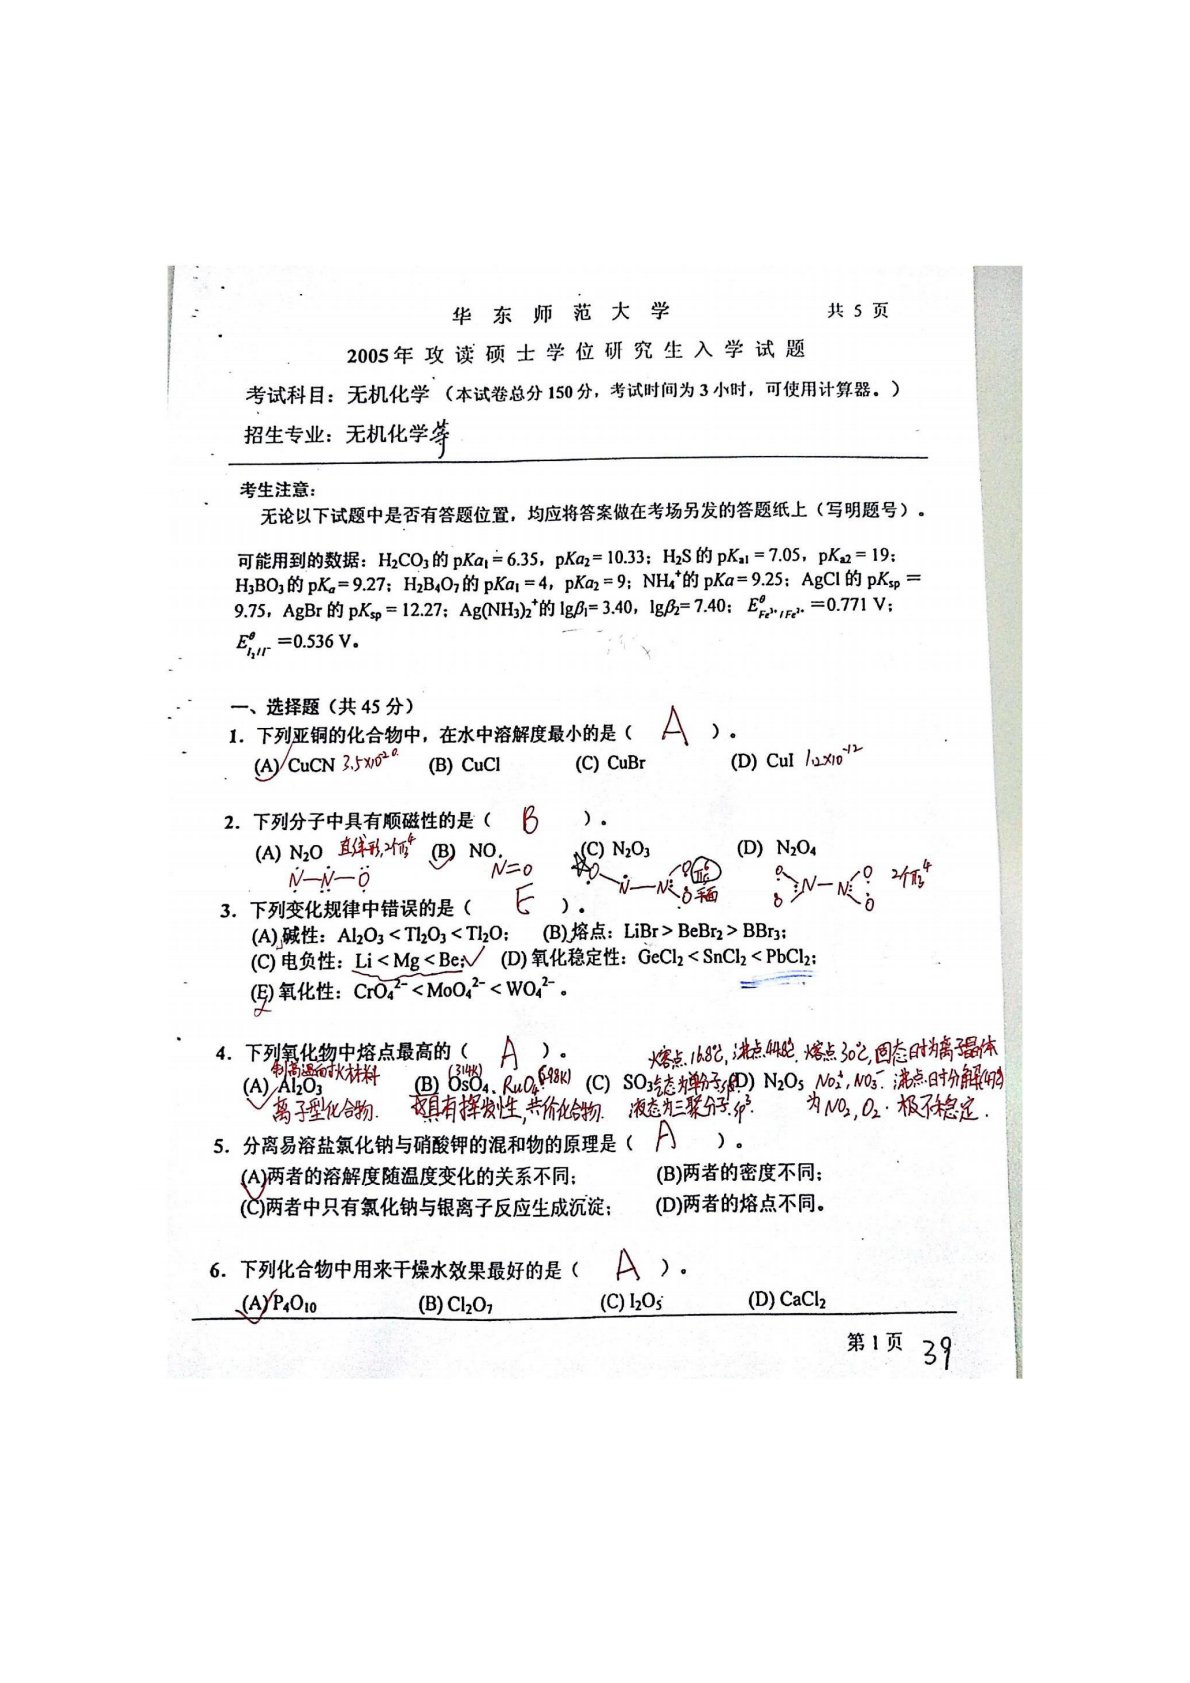 华东师范大学 共 5 页
2005年攻读硕士学位研究生入学试题
考试科目：无机化学（本试卷总分150分，考试时间为3小时，可使用计算器。）
招生专业：无机化学等
考生注意：
无论以下试题中是否有答题位置，均应将答案做在考场另发的答题纸上（写明题号）。
可能用到的数据：H₂CO₃的 pKa₁ = 6.35，pKa₂ = 10.33；H₂S 的 pKₐ₁ = 7.05，pKₐ₂ = 19；
H₃BO₃的 pKₐ = 9.27；H₂B₄O₇的 pKa₁ = 4，pKa₂ = 9；NH₄⁺的 pKa = 9.25；AgCl 的 pKsp =
9.75，AgBr 的 pKsp = 12.27；Ag(NH₃)₂⁺的 lgβ₁= 3.40，lgβ₂= 7.40；E^θ Fe³⁺/Fe²⁺ =0.771 V；
E^θ I₂/I⁻ =0.536 V。
一、选择题（共 45 分）
1．下列亚铜的化合物中，在水中溶解度最小的是（ A ）。
(A) CuCN 3.5×10⁻²⁰ (B) CuCl (C) CuBr (D) CuI 1.2×10⁻¹²
2．下列分子中具有顺磁性的是（ B ）。
(A) N₂O 直线形，2个π₃⁴ (B) NO (C) N₂O₃ (D) N₂O₄
N—N—O N=O O N—N O O 平面 O O N—N O O 2个π₃⁴
3．下列变化规律中错误的是（ E ）。
(A) 碱性：Al₂O₃ < Tl₂O₃ < Tl₂O； (B) 熔点：LiBr > BeBr₂ > BBr₃；
(C) 电负性：Li < Mg < Be； (D) 氧化稳定性：GeCl₂ < SnCl₂ < PbCl₂；
(E) 氧化性：CrO₄²⁻ < MoO₄²⁻ < WO₄²⁻。
4．下列氧化物中熔点最高的（ A ）。 熔点16.8℃，沸点44.8℃ 熔点30℃，固态时为离子晶体
制高温耐火材料
(A) Al₂O₃ (B) OsO₄ (314K)、RuO₄ (C) SO₃ 气态为单分子 (D) N₂O₅ NO₂⁺，NO₃⁻ 沸点时分解
离子型化合物. 具有挥发性，共价化合物. 液态为三聚分子 sp³ 为NO₂，O₂. 极不稳定.
5．分离易溶盐氯化钠与硝酸钾的混和物的原理是（ A ）。
(A)两者的溶解度随温度变化的关系不同； (B)两者的密度不同；
(C)两者中只有氯化钠与银离子反应生成沉淀； (D)两者的熔点不同。
6．下列化合物中用来干燥水效果最好的是（ A ）。
(A) P₄O₁₀ (B) Cl₂O₇ (C) I₂O₅ (D) CaCl₂
第 1 页 39